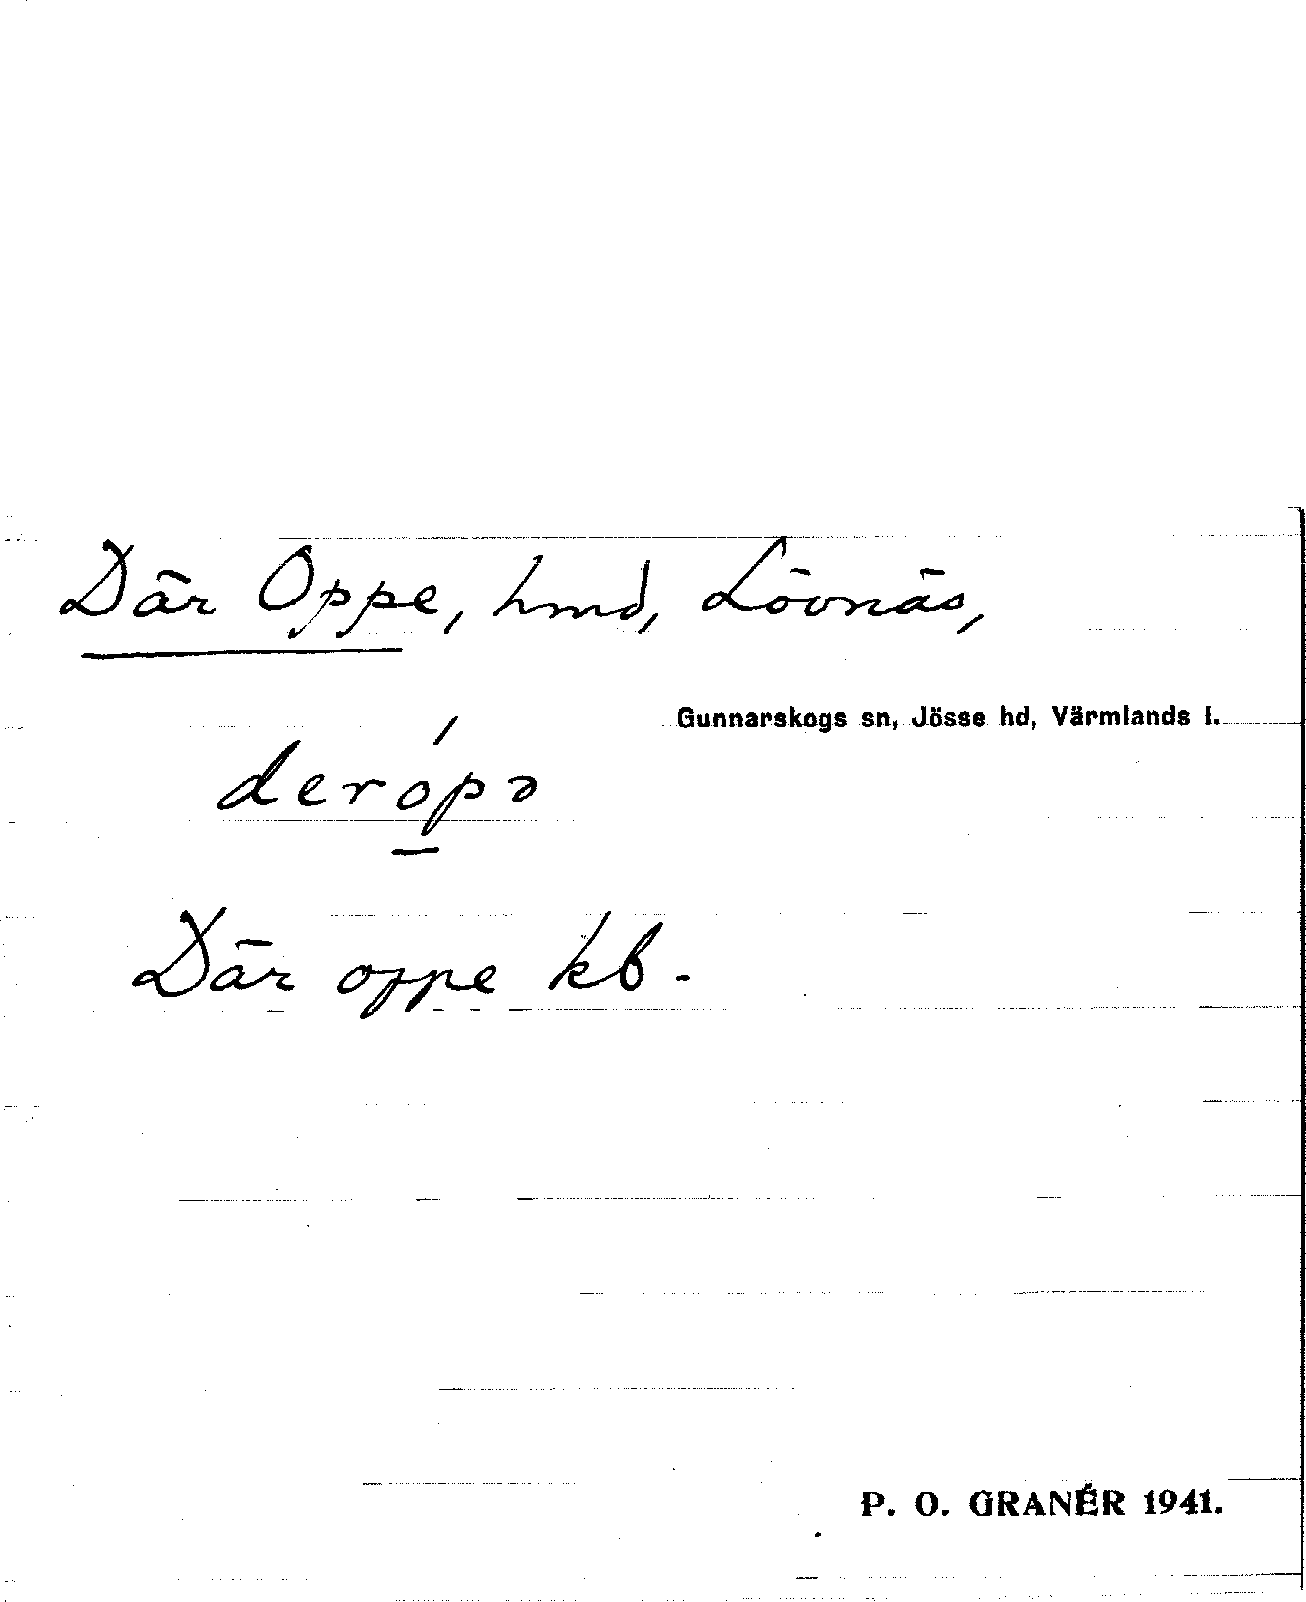 Där Oppe, hmd, Lövnäs,
Gunnarskogs sn, Jösse hd, Värmlands l.
derópə
Där oppe kb.
P. O. GRANÉR 1941.